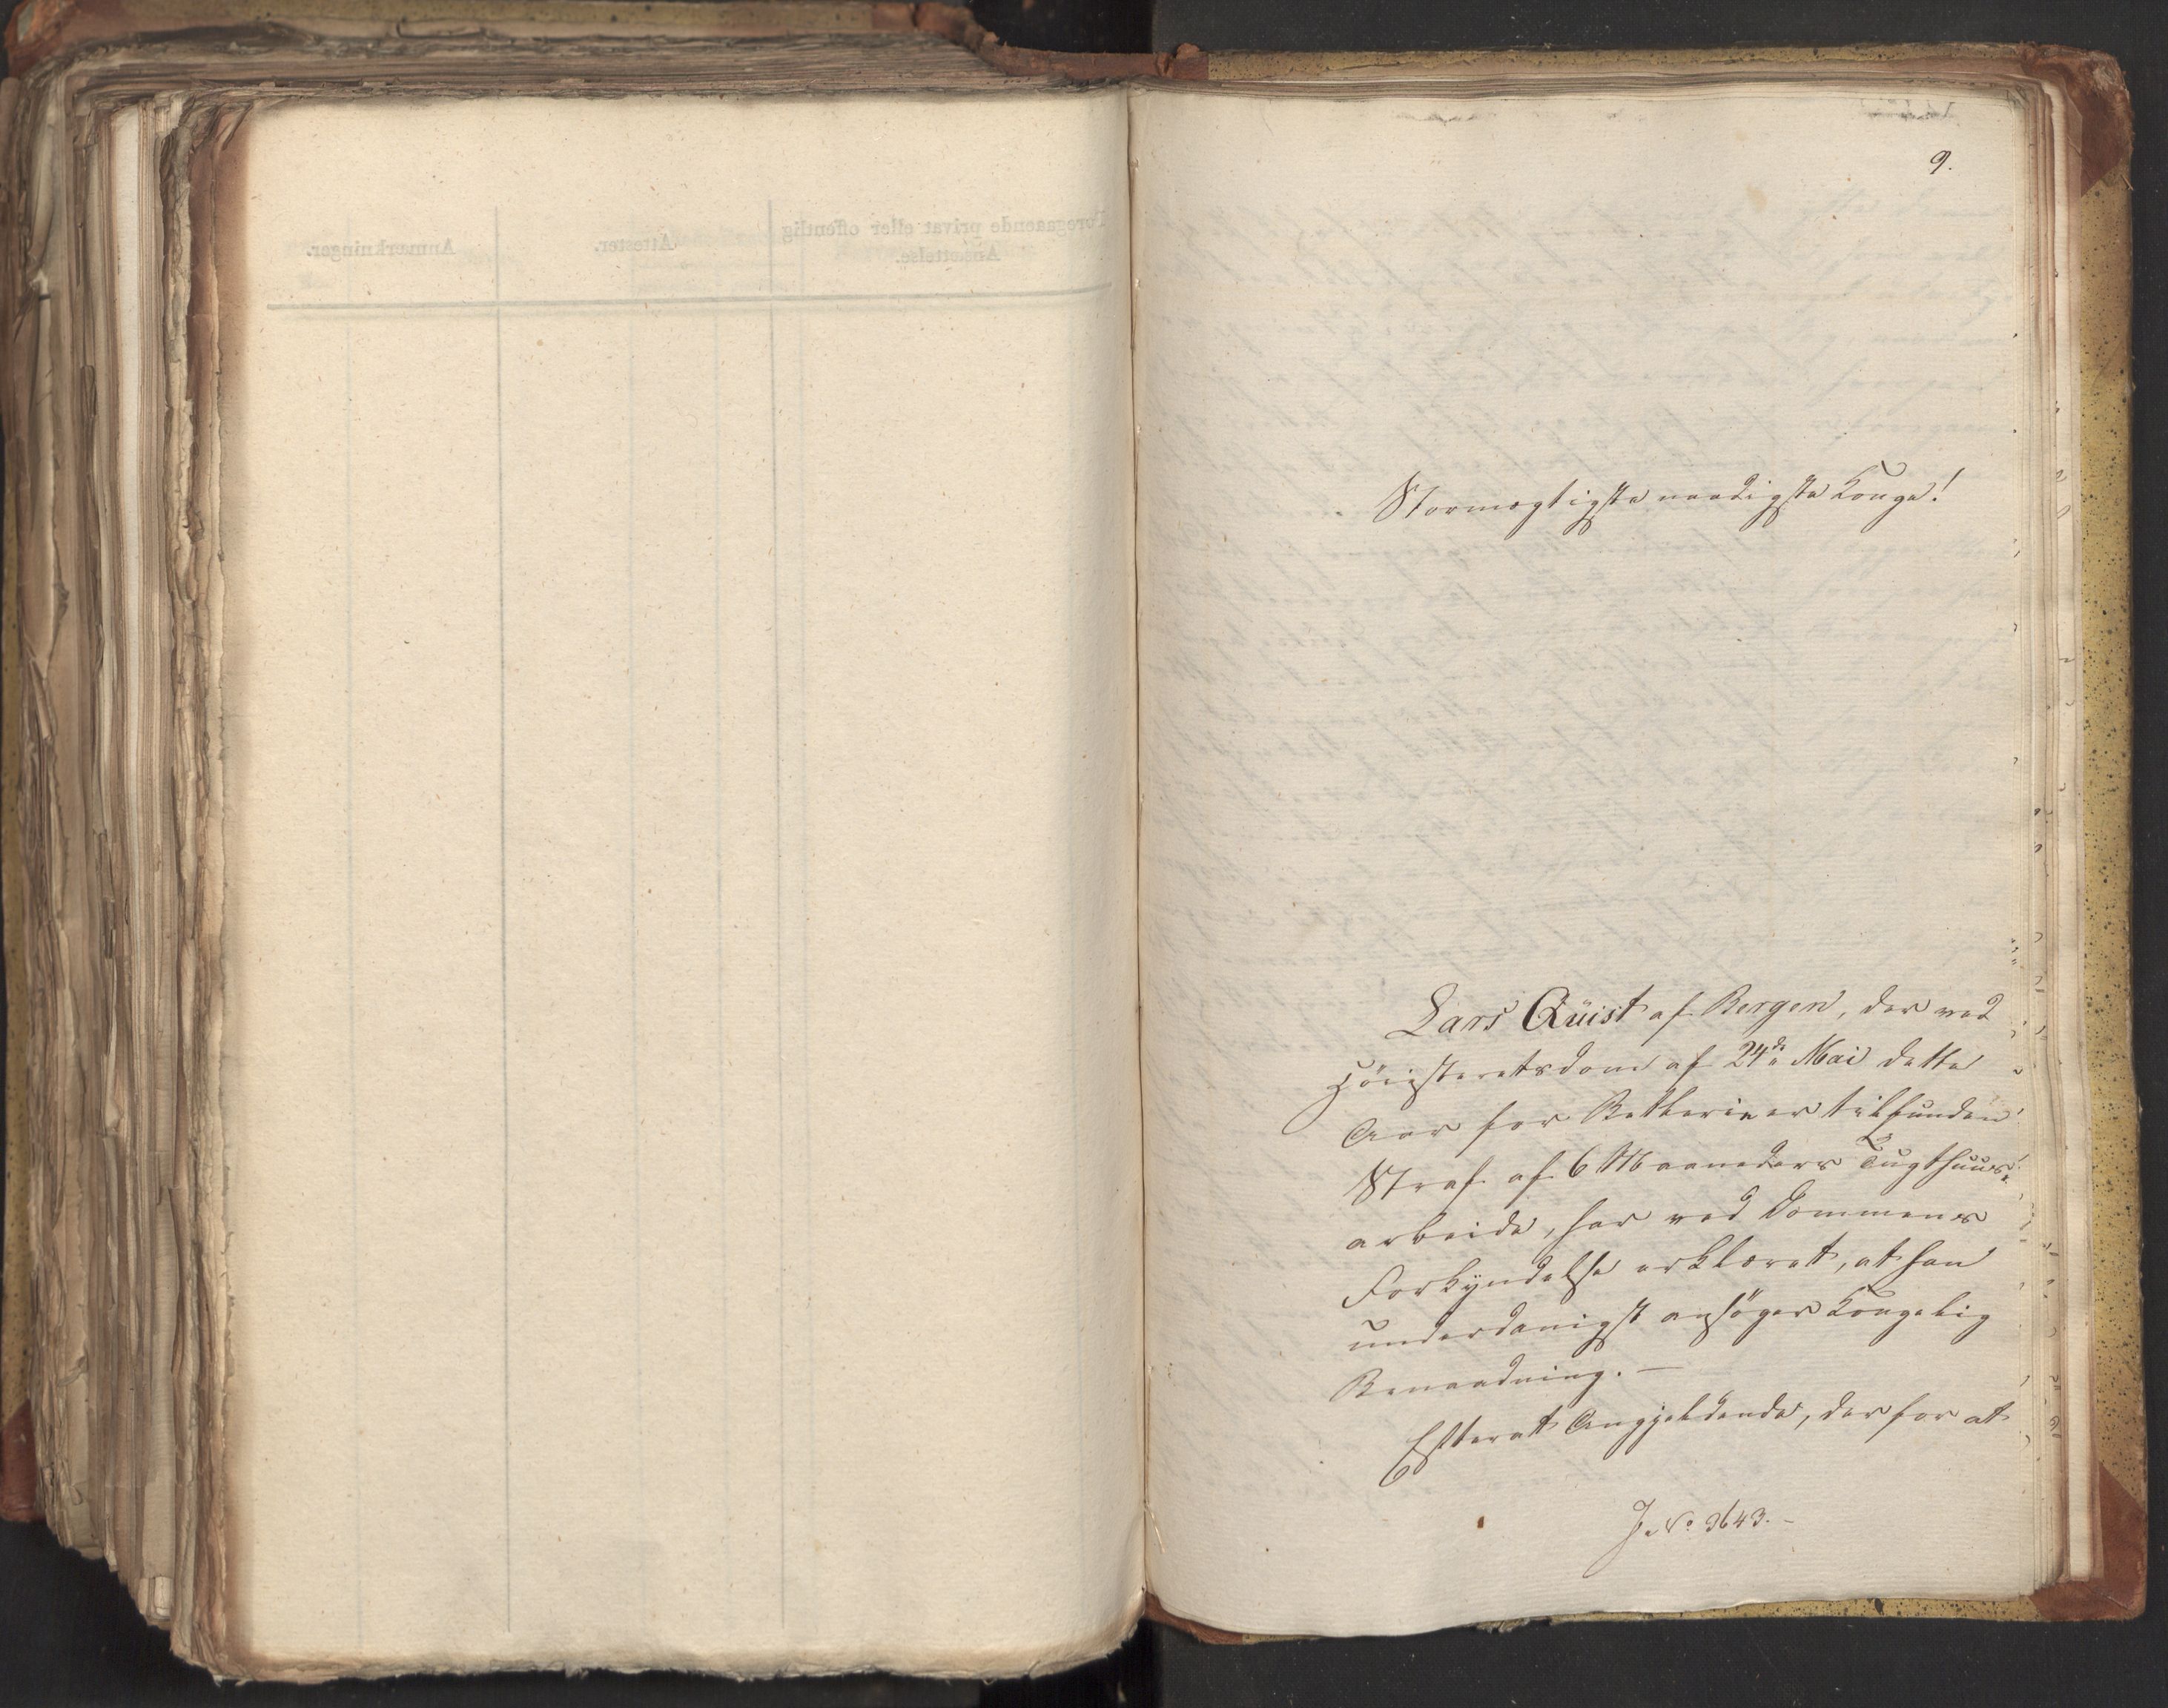 9.
Stormægtigste naadigste Konge!
Lars Qüist af Bergen, der ved
Höiesteretsdom af 24de Mai dette
Aar for Betlerie er tilfunden
Straf af 6 Maaneders Tugthuus-
arbeide, har ved Dommens
Forkyndelse erklæret, at han
underdanigst ansöger Kongelig
Benaadning. —
Efterat Angjeldende, der for at
J. No. 3643. –